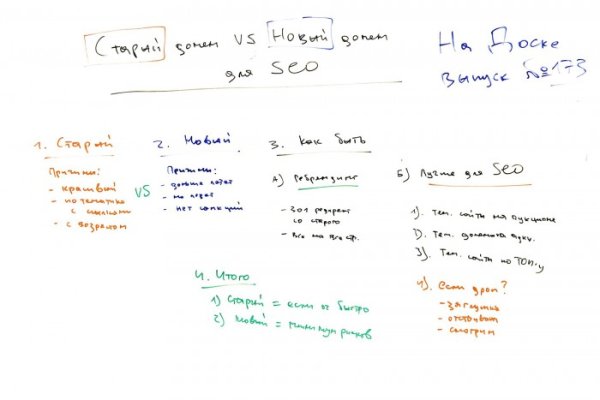 Старый домен VS Новый домен
для SEO
На Доске
выпуск №173
1. Старый
Причины:
- красивый
- по тематике
с ссылками
- с возрастом
VS
2. Новый
Причины:
- дольше
- нет санкций
3. Как быть
А) Ребрендинг
- 301 редирект
со старого
- Все на все стр.
Б) Лучше для SEO
1). Тем. сайты на аукционе
2). Тем. домены аукц.
3). Тем. сайты по ТОП-у
4). Если дроп?
- заглушка
- отстаиваем
- смотрим
4. Итого
1) Старый = если ок быстро
2) Новый = минимум рисков